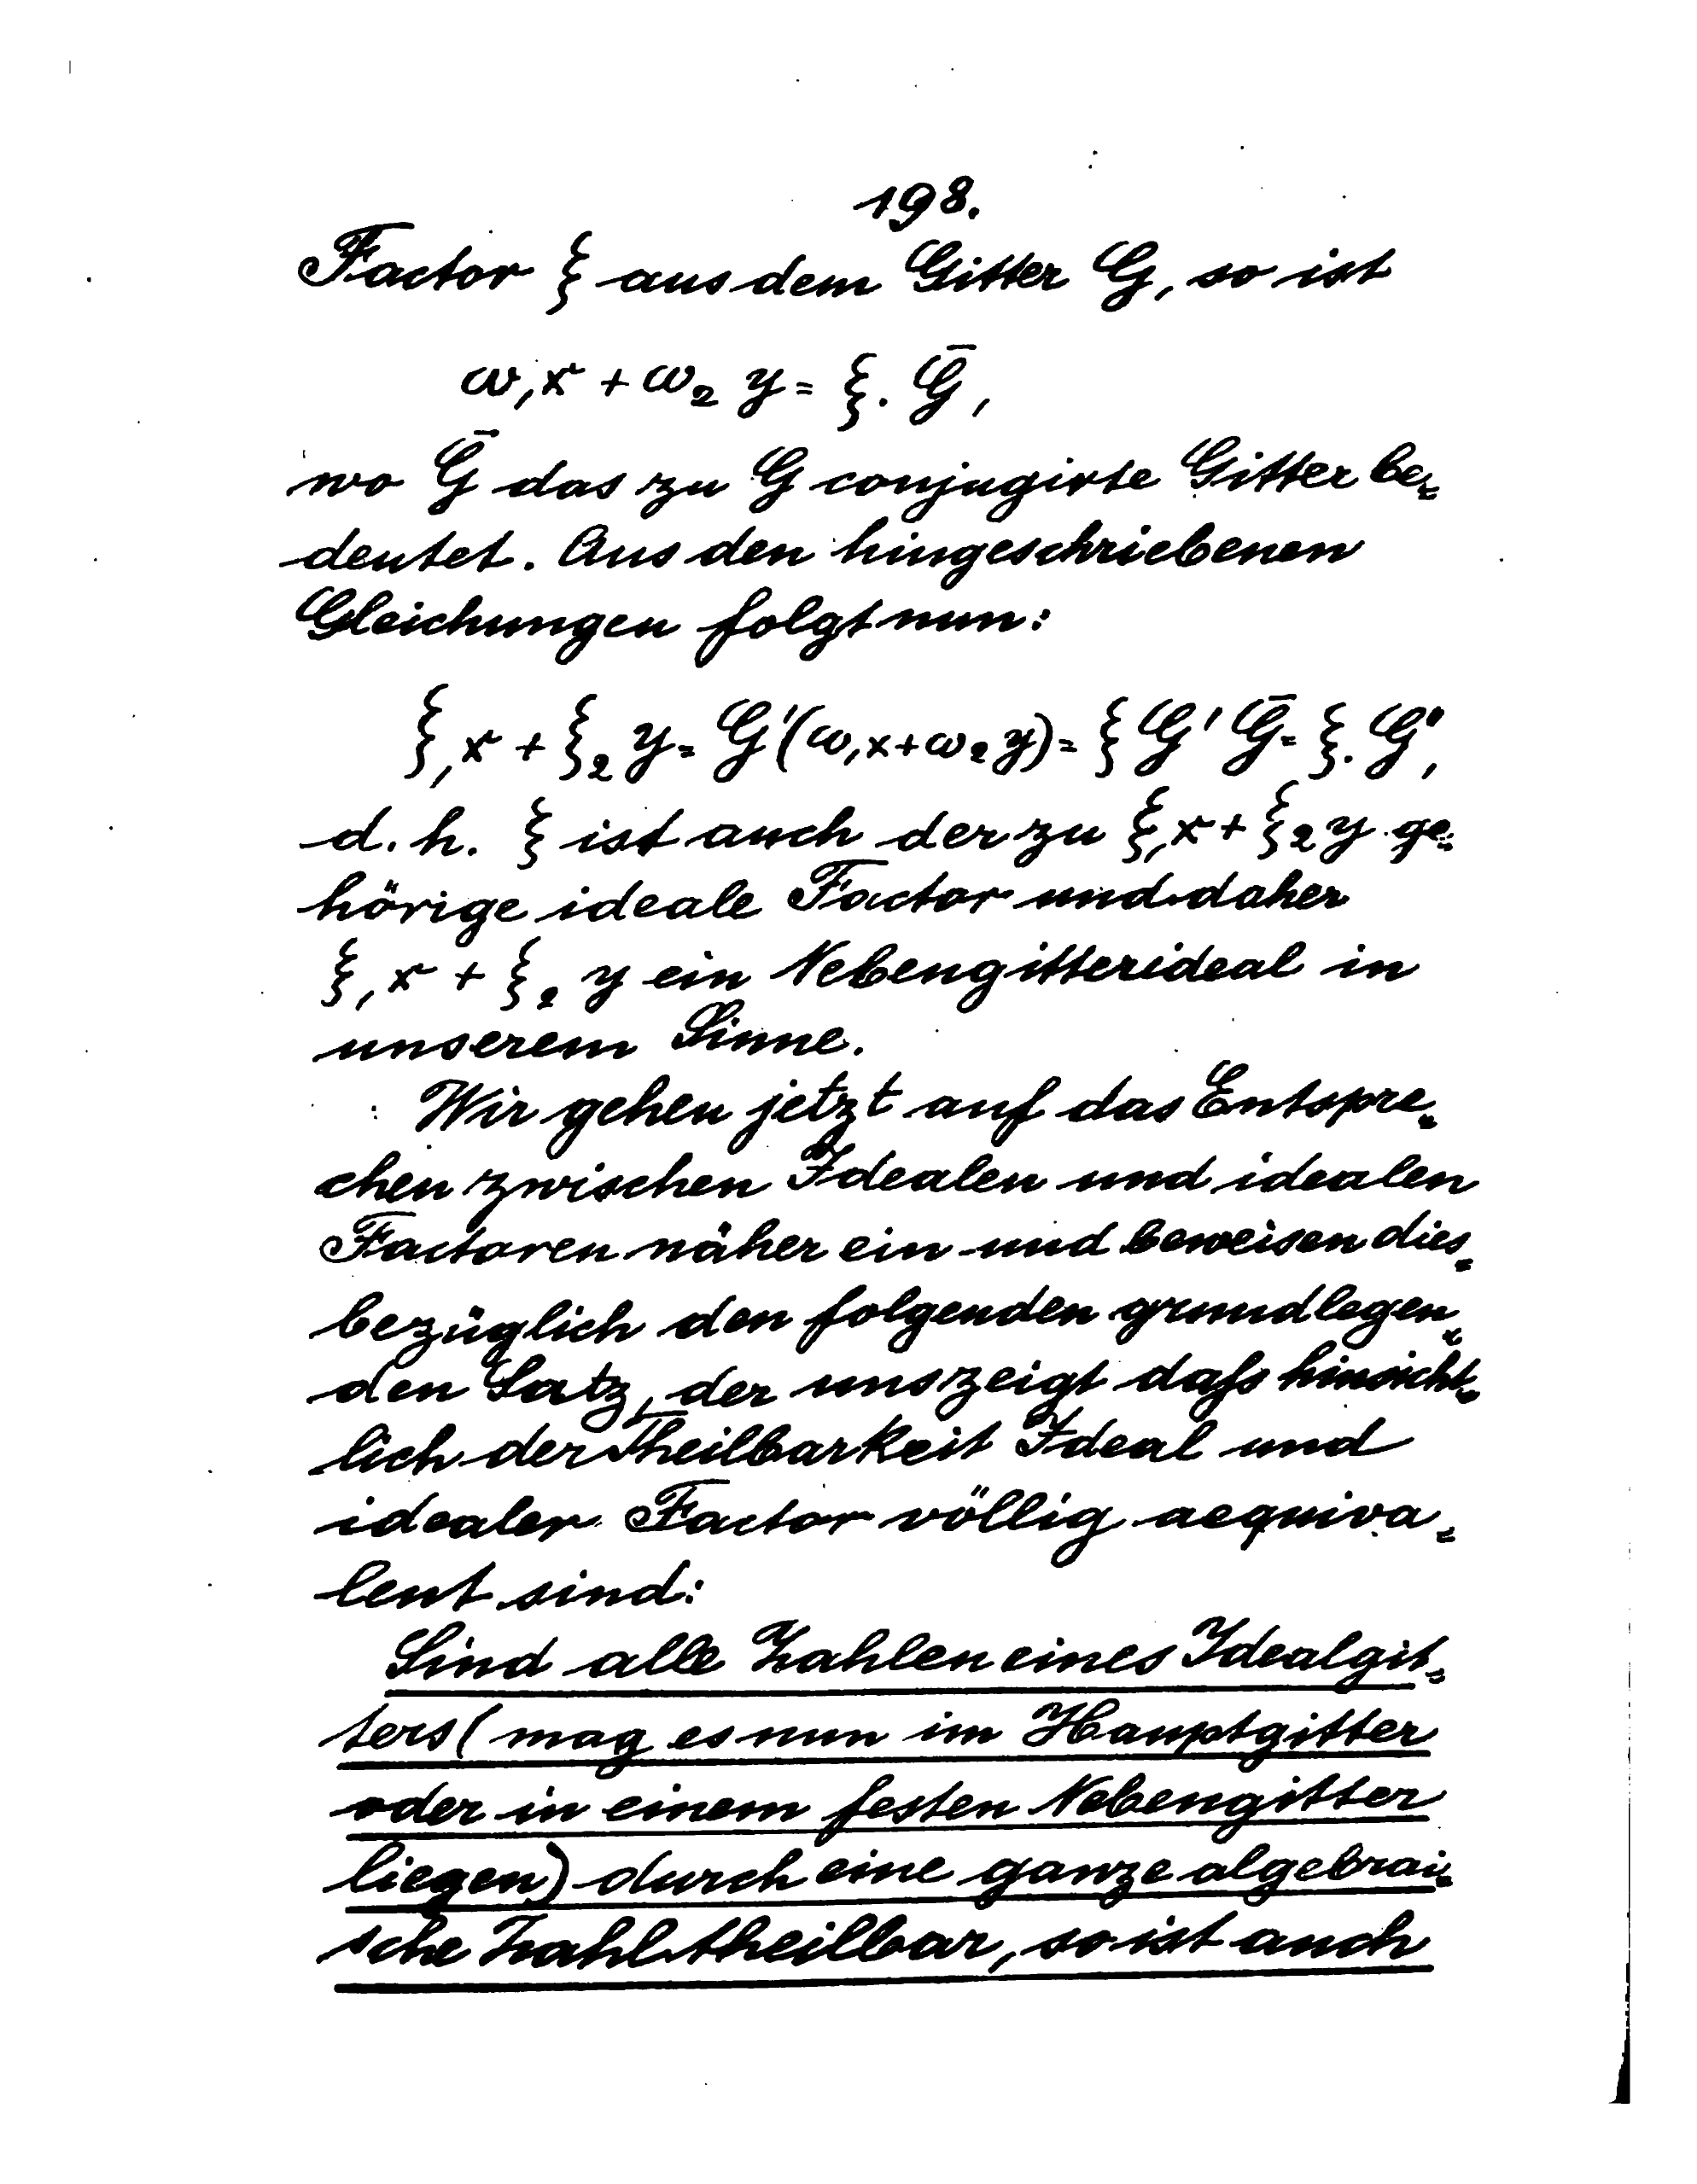 198.
Factor ξ aus dem Gitter G, so ist
ω₁x + ω₂ y = ξ. Ḡ,
wo Ḡ das zu G conjugirte Gitter be-
deutet. Aus den hingeschriebenen
Gleichungen folgt nun:
ξ₁x + ξ₂ y = G'(ω₁x+ω₂y) = ξ G' Ḡ = ξ. G",
d. h. ξ ist auch der zu ξ₁x + ξ₂ y ge-
hörige ideale Factor und daher
ξ₁x + ξ₂ y ein Nebengitterideal in
unserem Sinne.
Wir gehen jetzt auf das Entspre-
chen zwischen Idealen und idealen
Factoren näher ein und beweisen dies-
bezüglich den folgenden grundlegen-
den Satz, der uns zeigt dafs hinsicht-
lich der Theilbarkeit Ideal und
idealer Factor völlig aequiva-
lent sind:
Sind alle Zahlen eines Idealgit-
ters (mag es nun im Hauptgitter
oder in einem festen Nebengitter
liegen) durch eine ganze algebrai-
sche Zahl theilbar, so ist auch